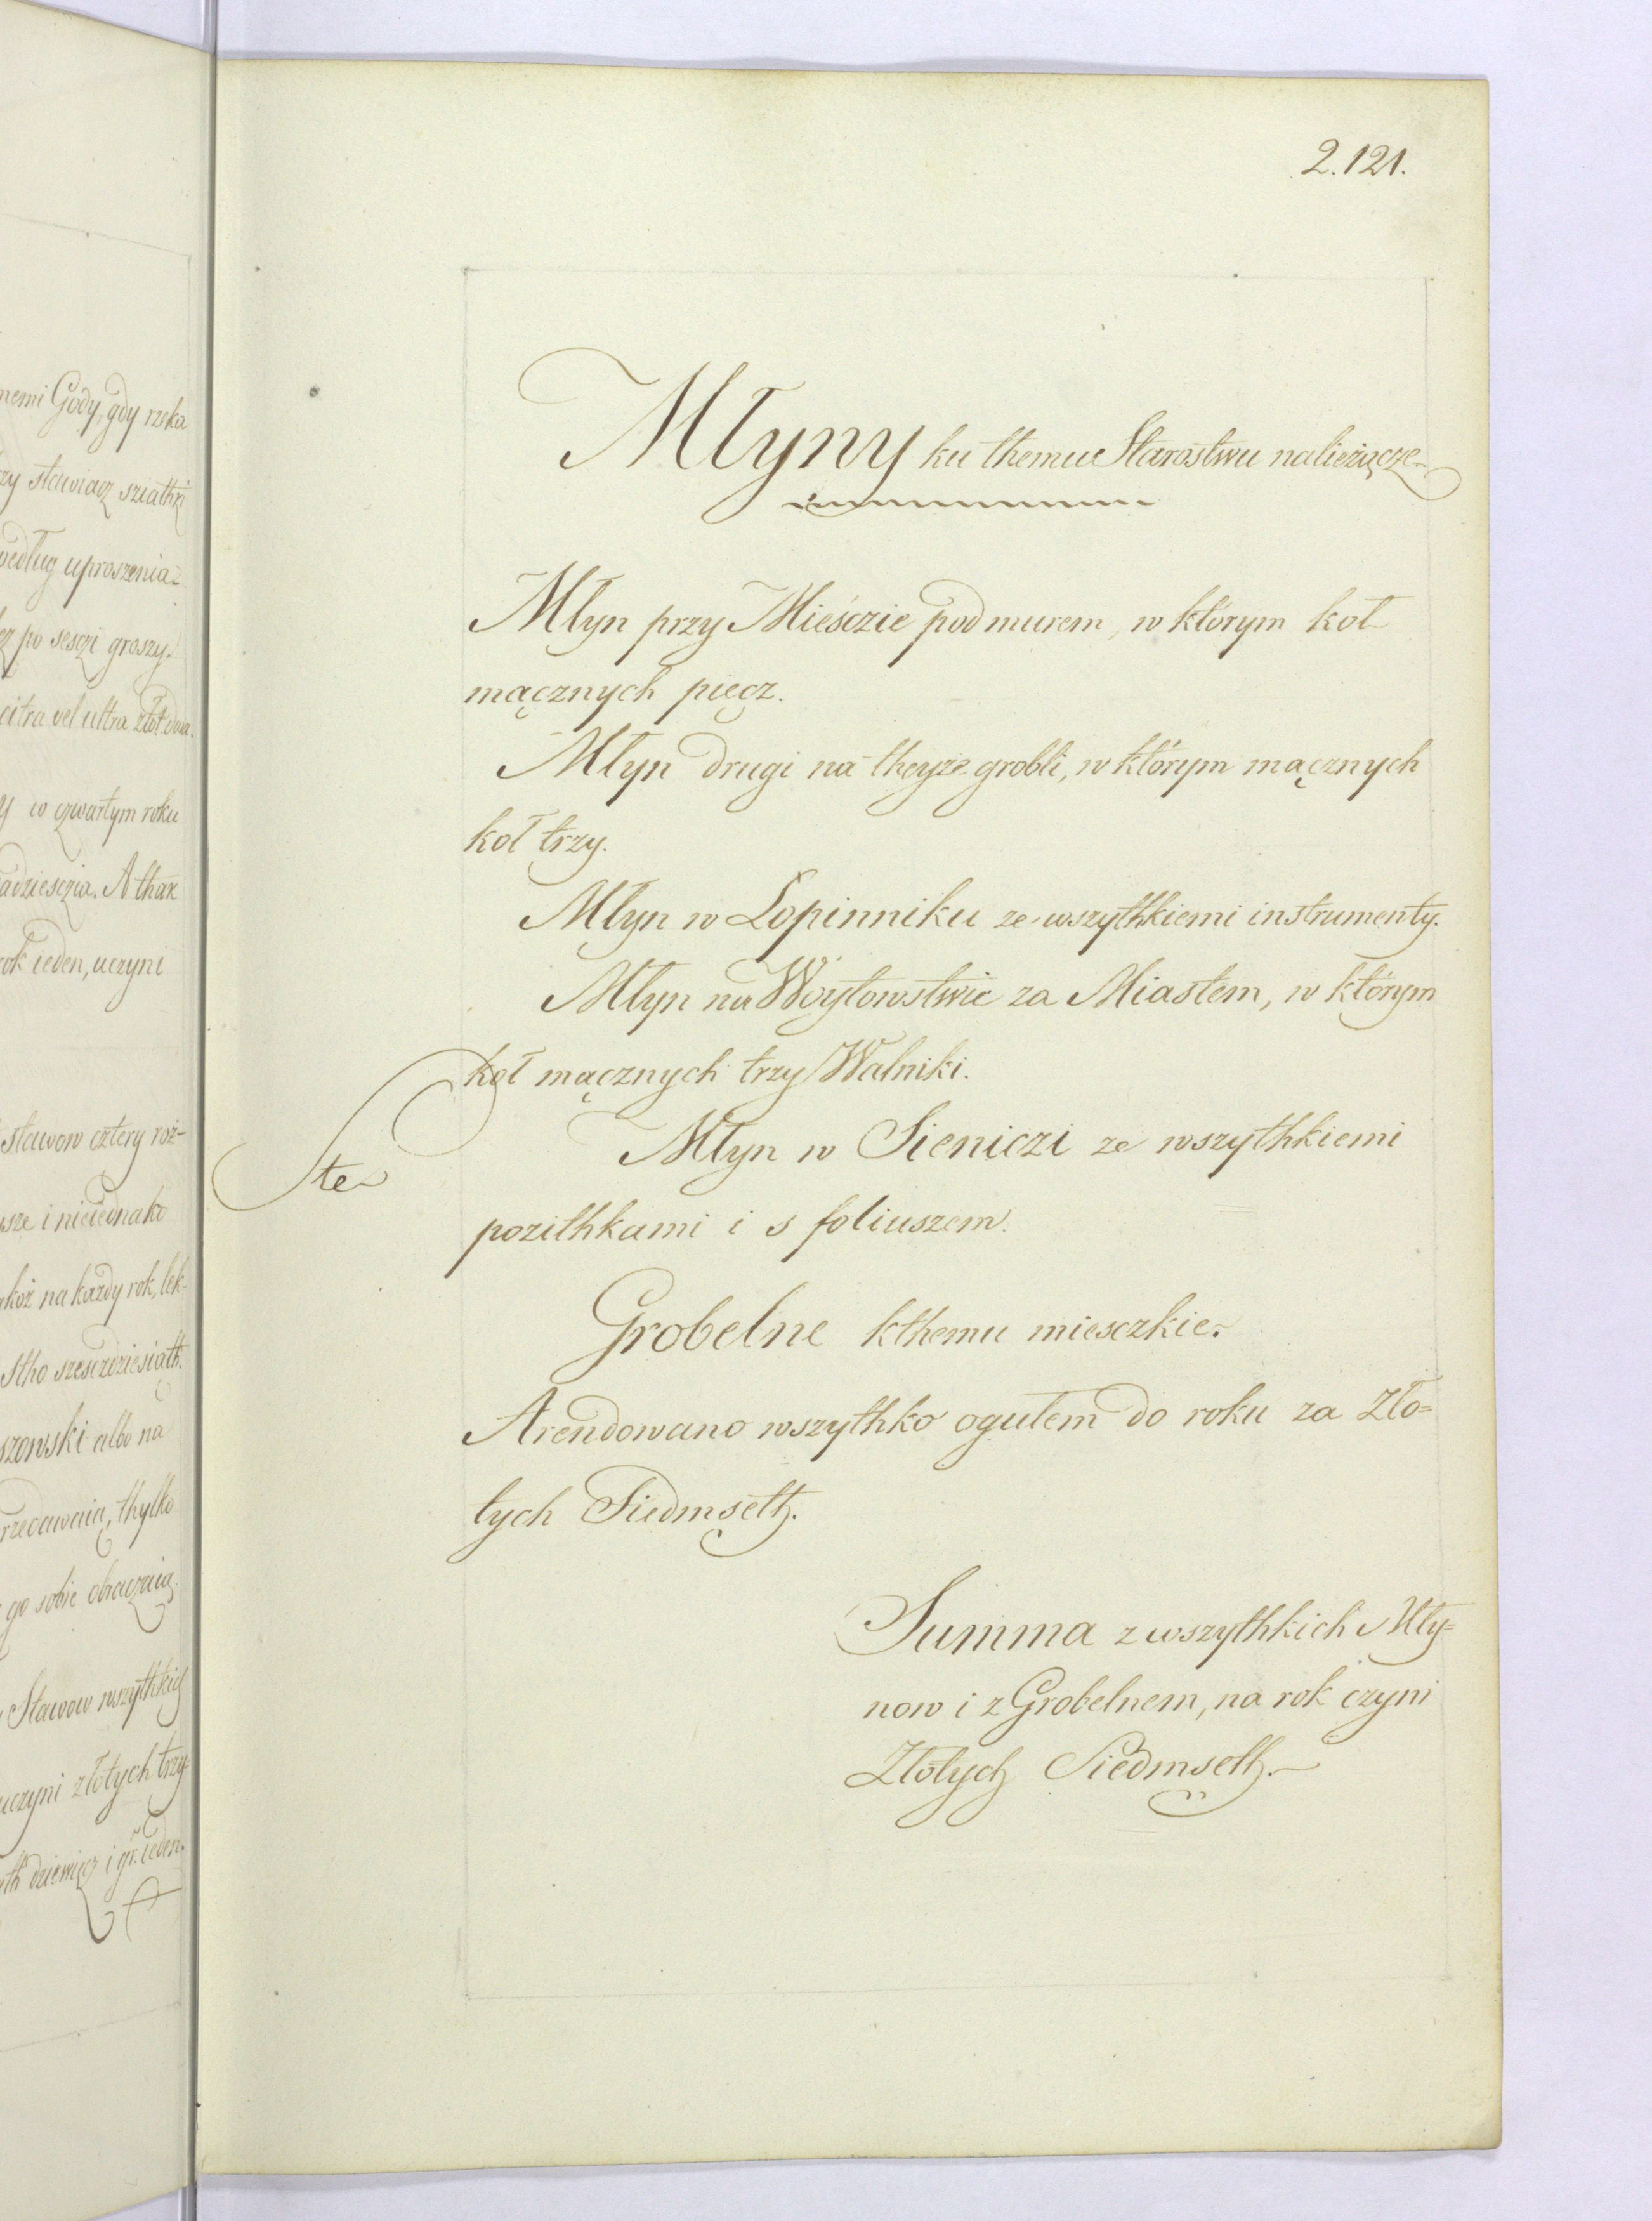 nemi Gody, gdy rzeka
zy stawiacz sziathki
według uproszenia
cz po sesczi groszy.
citra vel ultra złot. dwa.
y w czwartym roku
adziesczia. A thak
rok ieden, uczyni
stawow cztery roż-
wsze i nieiednako
akoż na każdy rok, lek-
stho szesczdziesiąth.
szowski albo na
rzedawaią, thylko
go sobie obraczaią
Stawow wszythkich
uczyni złotych trzy-
yth dziewięcz i gr. ieden.
2.121.
Młyny ku themu Starostwu nalieżącze
Młyn przy Mieśczie pod murem, w którym koł
mącznych pięcz.
Młyn drugi na theyże grobli, w którym mącznych
koł trzy.
Młyn w Łopinniku ze wszythkiemi instrumenty.
Młyn na Wóytowstwie za Miastem, w którym
koł mącznych trzy Walniki.
Młyn w Sieniczi ze wszythkiemi
te
pozithkami i s foliuszem.
Grobelne kthemu miesczkie.
Arendowano wszythko ogułem do roku za Zło=
tych Siedmseth.
Summa z wszythkich Mły=
now i z Grobelnem, na rok czyni
Złotych Siedmseth.